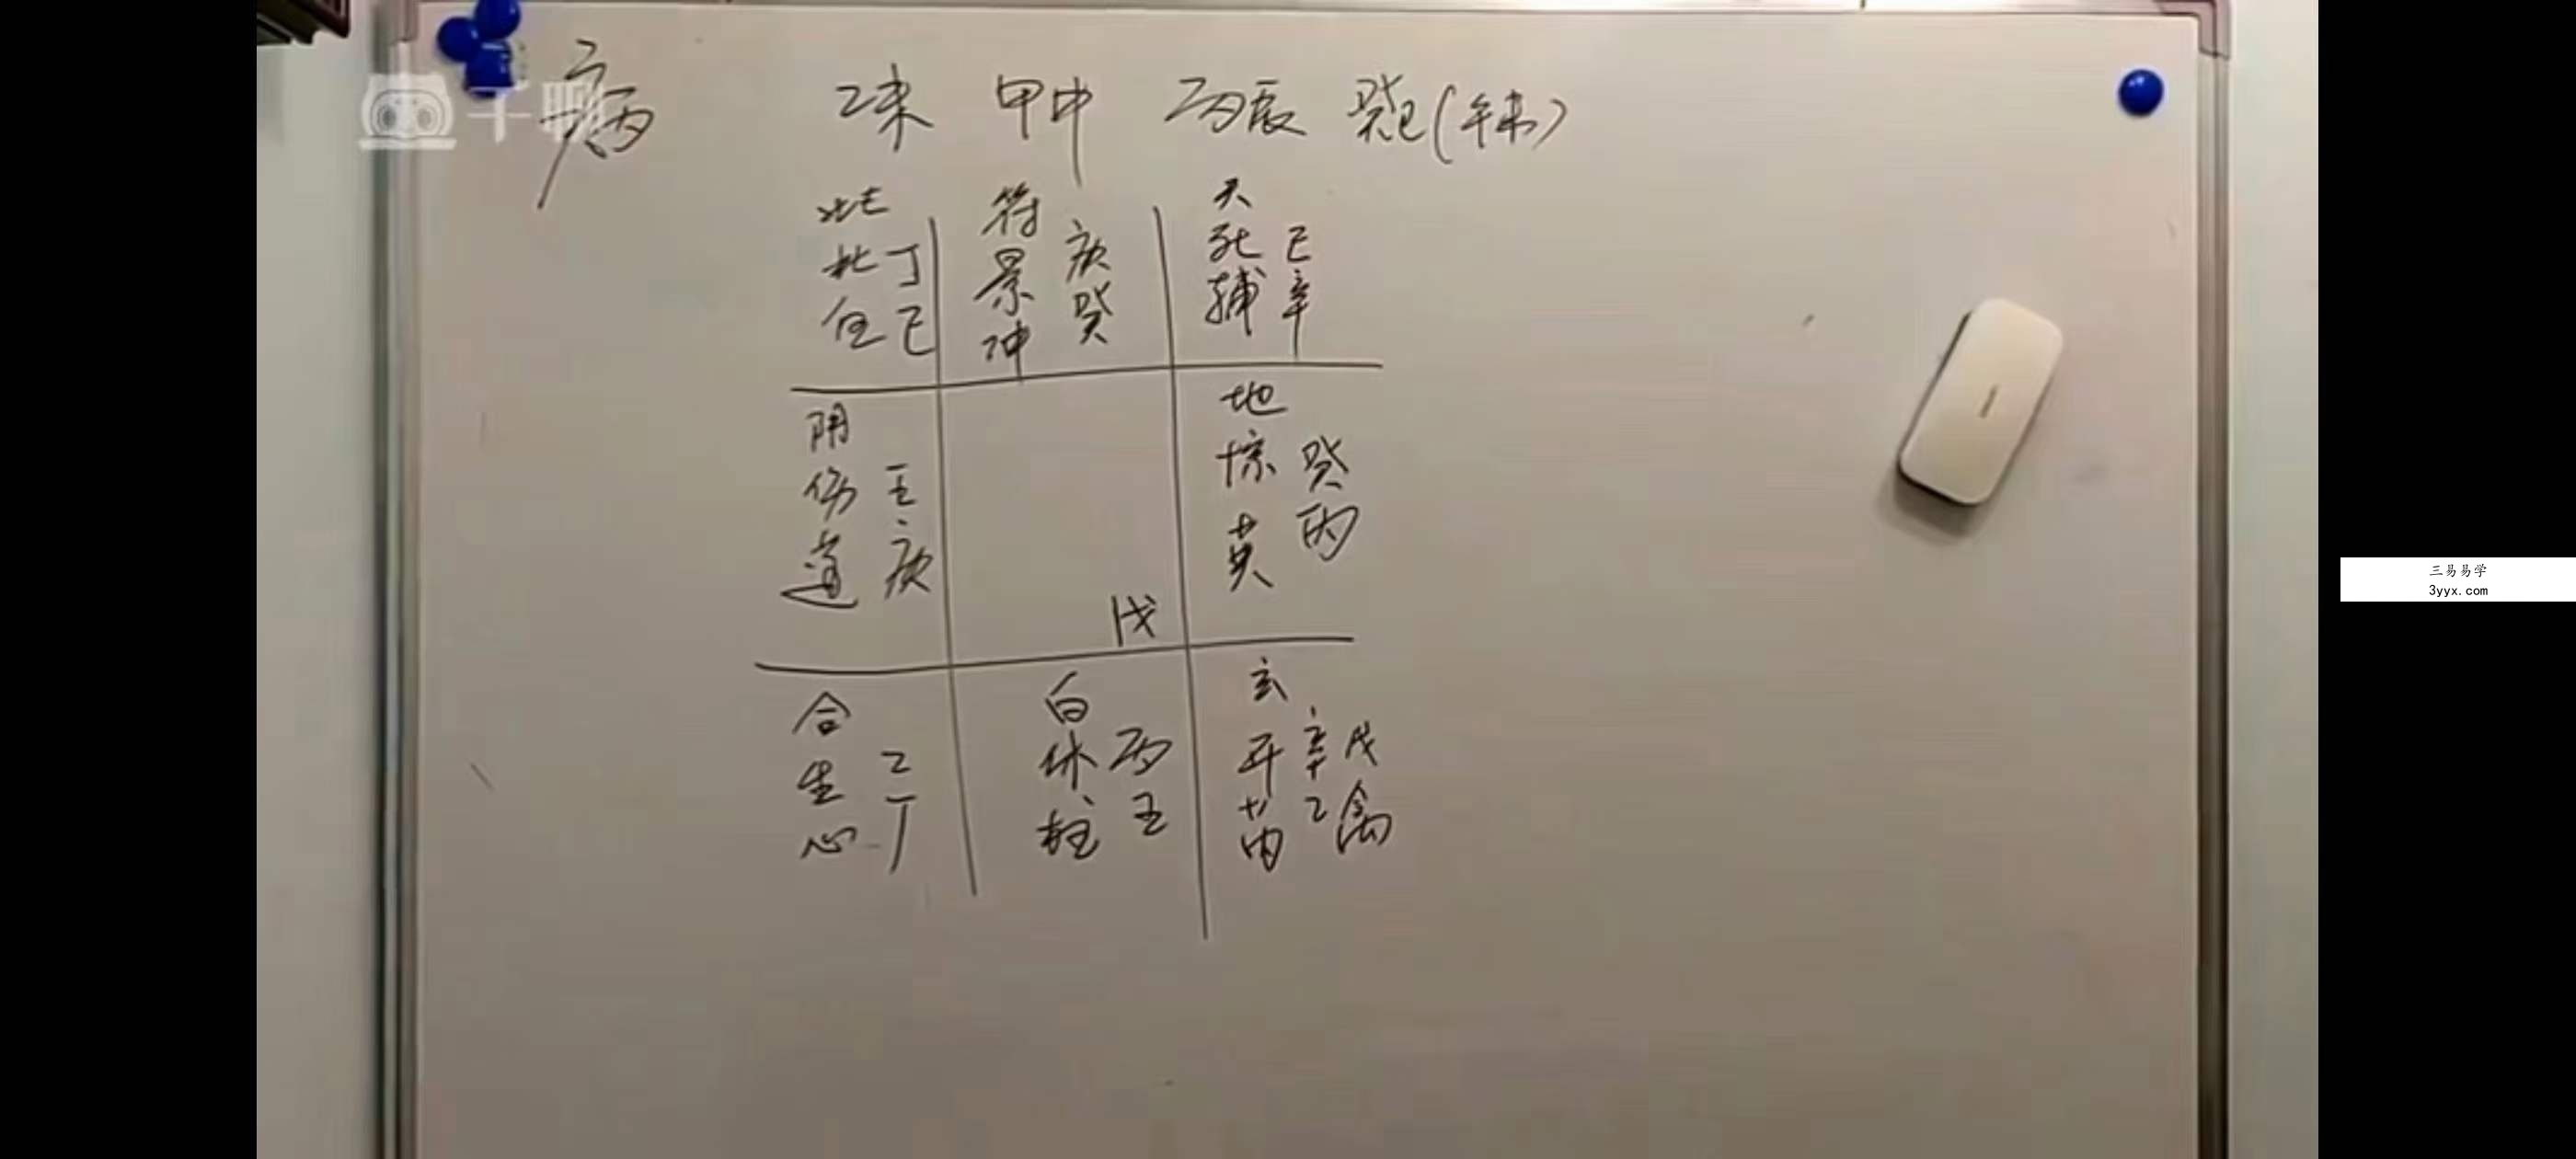 千聊
病 乙未 甲申 丙辰 癸巳(午未)
蛇 杜 任 丁 己
符 景 冲 庚 癸
天 死 辅 己 辛
阴 伤 蓬 壬 庚
戊
地 惊 英 癸 丙
合 生 心 乙 丁
白 休 柱 丙 壬
玄 开 芮 辛 乙 戊 禽
三易易学
3yyx.com